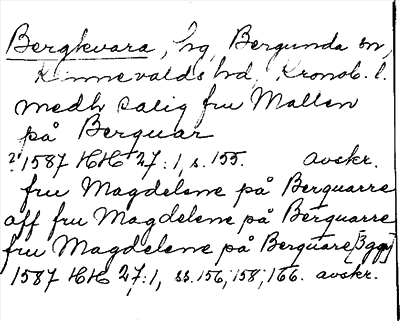 Bergkvara, hg, Bergunda sn,
Kinnevalds hd, Kronob. l.
medh salig fru Mallen
på Berquar
2/ 1587 HH 27:1, s. 155. avskr.
fru Magdelene på Berquarre
aff fru Magdelene på Berquarre
fru Magdelene på Berquare [3 ggr]
1587 HH 27:1, ss. 156, 158, 166. avskr.